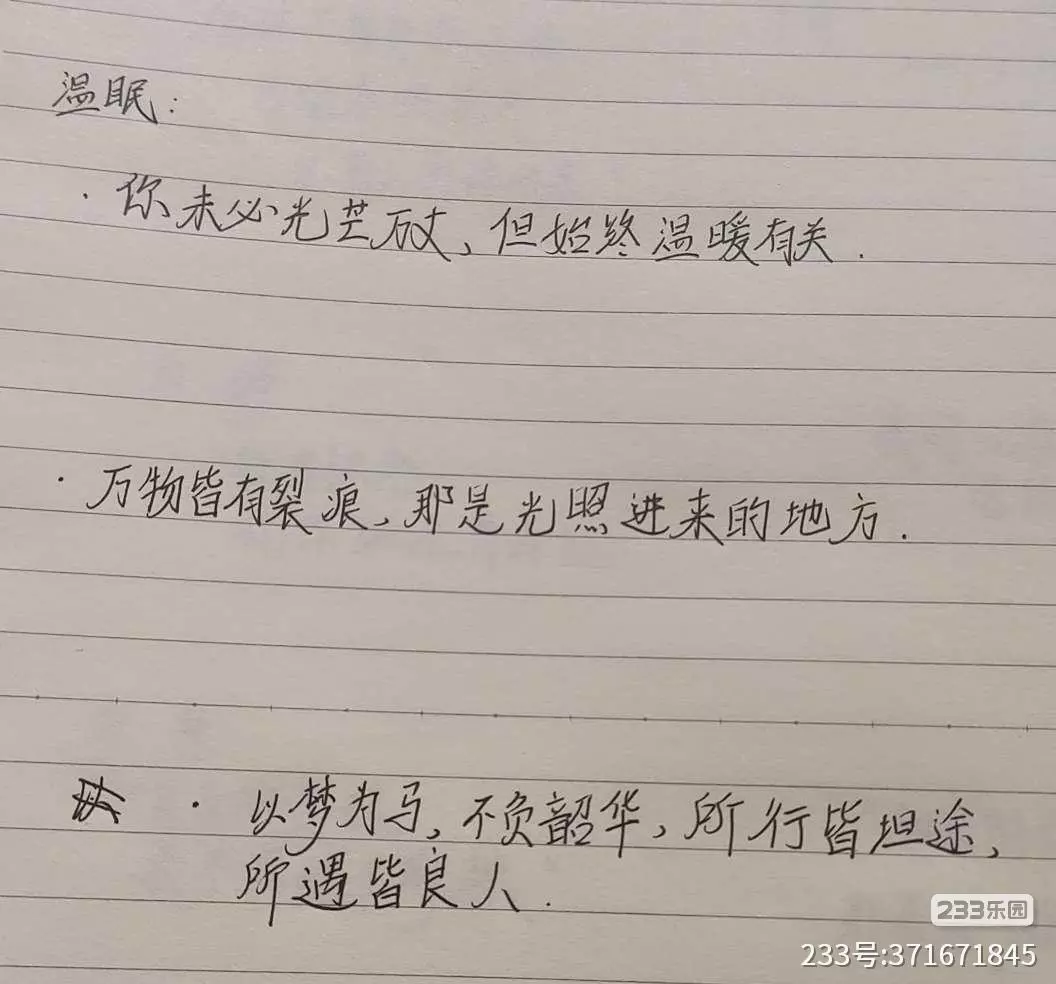 温眠：
·你未必光芒万丈，但始终温暖有关.
·万物皆有裂痕，那是光照进来的地方.
·以梦为马，不负韶华，所行皆坦途，
所遇皆良人.
233乐园
233号:371671845